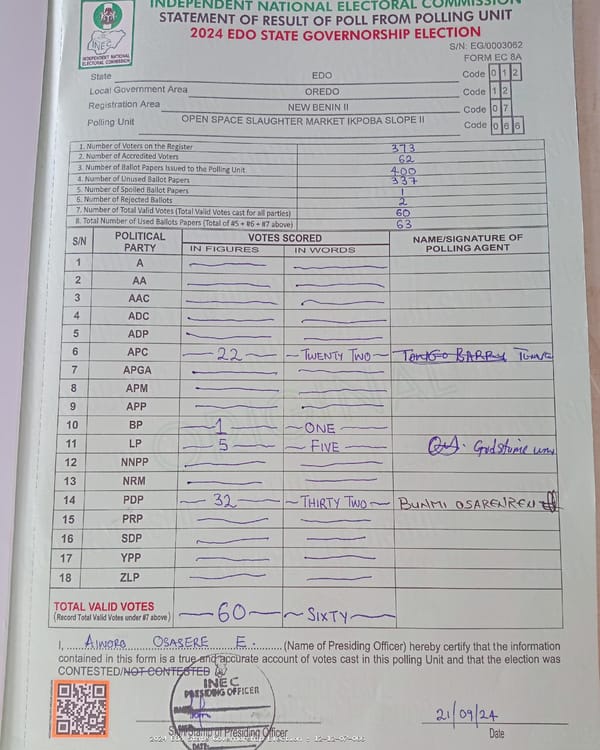 INDEPENDENT NATIONAL ELECTORAL COMMISSION
STATEMENT OF RESULT OF POLL FROM POLLING UNIT
2024 EDO STATE GOVERNORSHIP ELECTION
INEC
INDEPENDENT NATIONAL
ELECTORAL COMMISSION
S/N: EG/0003062
FORM EC 8A
State EDO Code 0 1 2
Local Government Area OREDO Code 1 2
Registration Area NEW BENIN II Code 0 7
Polling Unit OPEN SPACE SLAUGHTER MARKET IKPOBA SLOPE II Code 0 6 6
1. Number of Voters on the Register 373
2. Number of Accredited Voters 62
3. Number of Ballot Papers Issued to the Polling Unit 400
4. Number of Unused Ballot Papers 337
5. Number of Spoiled Ballot Papers 1
6. Number of Rejected Ballots 2
7. Number of Total Valid Votes (Total Valid Votes cast for all parties) 60
8. Total Number of Used Ballots Papers (Total of #5 + #6 + #7 above) 63
S/N POLITICAL PARTY VOTES SCORED NAME/SIGNATURE OF POLLING AGENT
IN FIGURES IN WORDS
1 A
2 AA
3 AAC
4 ADC
5 ADP
6 APC 22 TWENTY TWO BARRY
7 APGA
8 APM
9 APP
10 BP 1 ONE
11 LP 5 FIVE
12 NNPP
13 NRM
14 PDP 32 THIRTY TWO BUNMI OSARENREN
15 PRP
16 SDP
17 YPP
18 ZLP
TOTAL VALID VOTES 60 SIXTY
(Record Total Valid Votes under #7 above)
I, OSASERE E. (Name of Presiding Officer) hereby certify that the information
contained in this form is a true and accurate account of votes cast in this polling Unit and that the election was
CONTESTED/NOT CONTESTED
INEC
PRESIDING OFFICER
of Presiding Officer
DATE:
21/09/24
Date